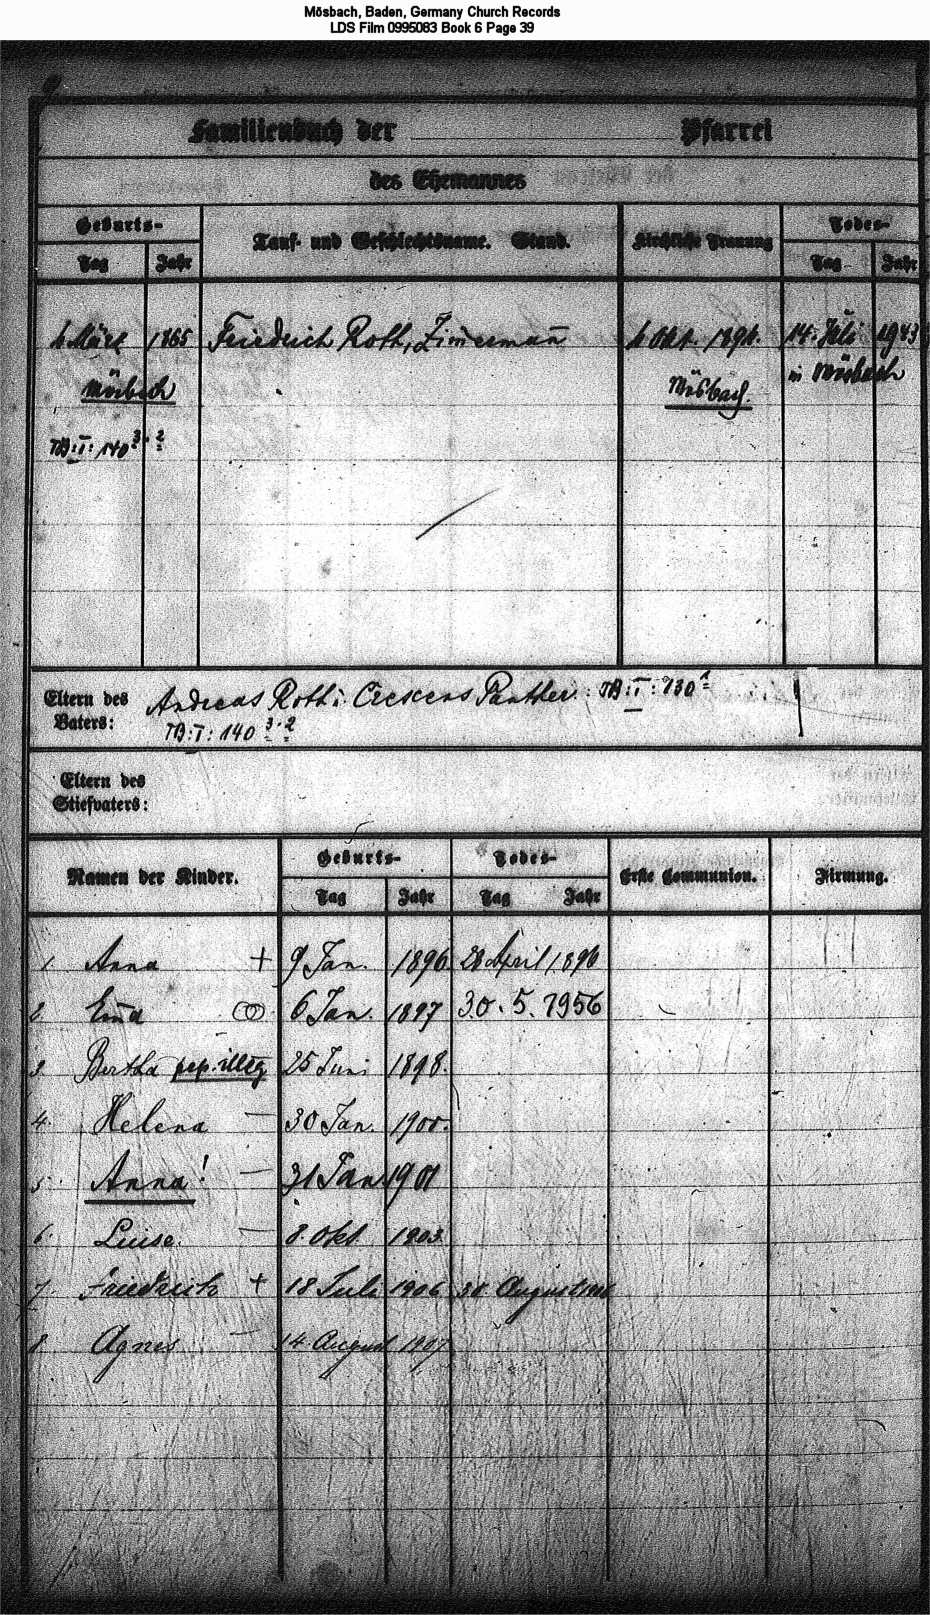 Mösbach, Baden, Germany Church Records
LDS Film 0995083 Book 6 Page 39
Familienbuch der Pfarrei
des Ehemannes
Geburts-
Tag Jahr
Tauf- und Geschlechtsname. Stand.
Kirchliche Trauung
Todes-
Tag Jahr
März 1865 Friedrich Roth, Zim̄erman̄ Okt. 14. Juli 1943
Mösbach Mösbach. in Mösbach
I: 140 3. 2
Eltern des Vaters: Andreas Roth Crescens Panther I: 130 1
I: 140 3. 2
Eltern des Stiefvaters:
Namen der Kinder.
Geburts-
Tag Jahr
Todes-
Tag Jahr
Erste Communion. Firmung.
1. Anna + 9 Jan. 1896. 28 April 1896
2. Em̄a ⚭ 6 Jan. 1897 30. 5. 1956
3. Bertha 25 Juni 1898.
4. Helena — 30 Jan. 1900.
5. Anna! — 31 Jan 1901
6. Luise. — 8. Okt. 1903.
7. Friedrich + 18 Juli 1906 30 August 1906
8. Agnes — 14 August 1907